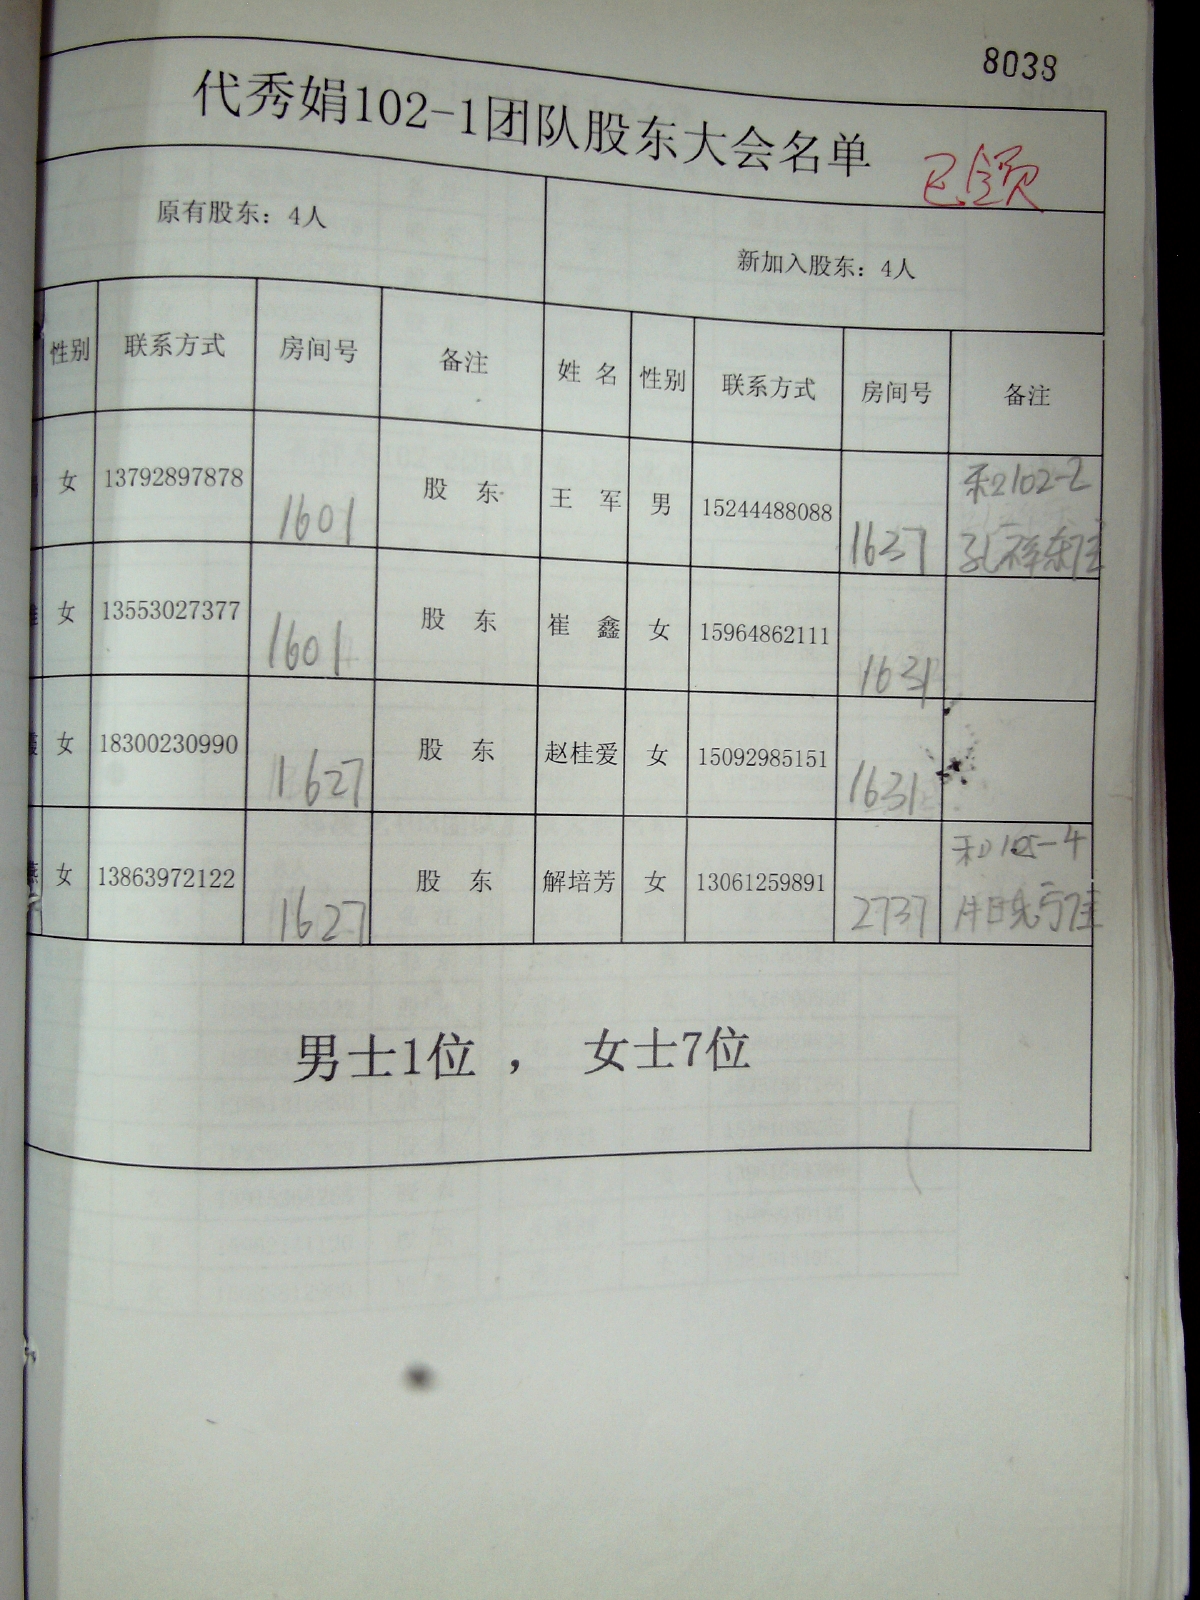 8038
代秀娟102-1团队股东大会名单
已领
原有股东：4人 新加入股东：4人
性别 联系方式 房间号 备注 姓 名 性别 联系方式 房间号 备注
女 13792897878 1601 股 东 王 军 男 15244488088 1637 和102-2
孔祥东住
女 13553027377 1601 股 东 崔 鑫 女 15964862111 1631
女 18300230990 1627 股 东 赵桂爱 女 15092985151 1631
女 13863972122 1627 股 东 解培芳 女 13061259891 2737 和105-4
男士1位 ， 女士7位